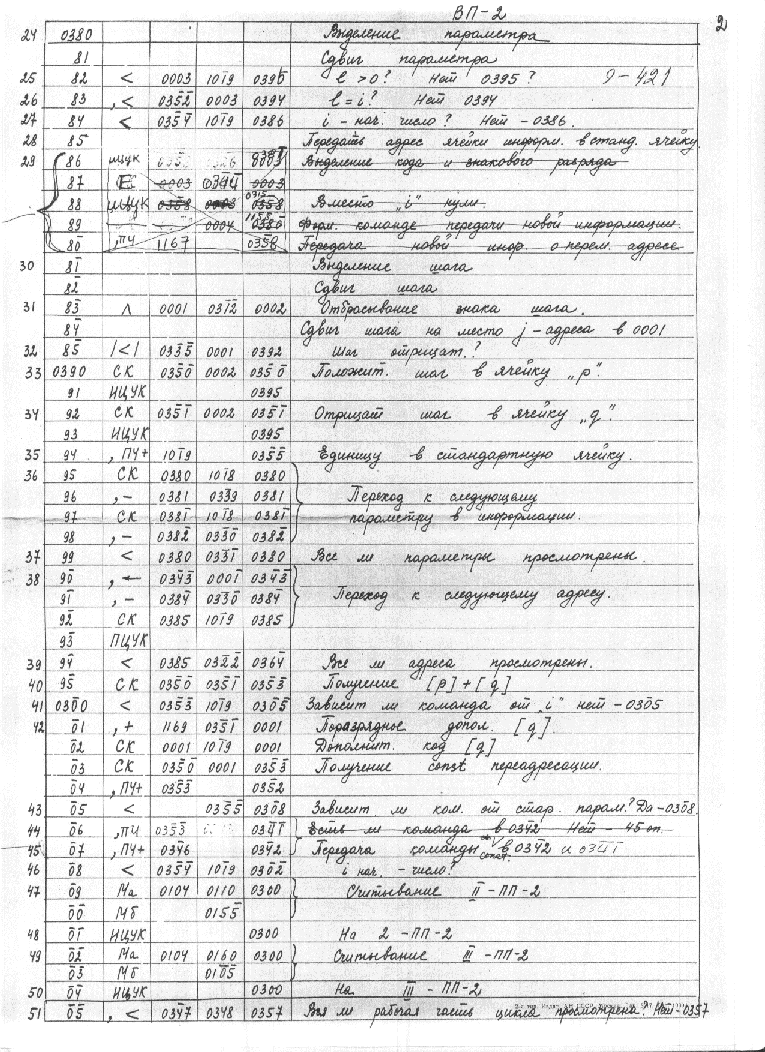 ВП-2
2
24 0380 Выделение параметра
81 Сдвиг параметра
25 82 < 0003 101̄9 0395̄ l > 0? Нет 0395? Э-421
26 83 ,< 035̄2̄ 0003 0394 l = i? Нет 0394
27 84 < 035̄4̄ 101̄9 0386 i - нач. число? Нет - 0386.
28 85 Передать адрес ячейки информ. в станд. ячейку.
29 86 ИЦУК 0003 Выделение кода и знакового разряда
87 Е 0003 034̄4̄ 0003
88 ИЦУК 0358 0003 035̄8 Вместо „i" нули
89 0004 038̄0̄ Форм. команде передачи новой информации.
80̄ ,ПЧ 1167 0358 Передача новой инф. о перем. адресе
30 81̄ Выделение шага
82̄ Сдвиг шага
31 83̄ Λ 0001 031̄2 0002 Отбрасывание знака шага.
84̄ Сдвиг шага на место j - адреса в 0001
32 85̄ |<| 033̄5̄ 0001 0392 Шаг отрицат.?
33 0390 СК 035̄0̄ 0002 035̄0̄ Положит. шаг в ячейку „p".
91 ИЦУК 0395
34 92 СК 035̄1̄ 0002 035̄1̄ Отрицат шаг в ячейку „q".
93 ИЦУК 0395
35 94 ,ПЧ+ 101̄9 035̄5̄ Единицу в стандартную ячейку.
36 95 СК 0380 101̄8 0380
96 ,- 0381 033̄9 0381 Переход к следующему
97 СК 038̄1̄ 101̄8 038̄1̄ параметру в информации.
98 ,- 038̄2̄ 033̄0̄ 038̄2̄
37 99 < 0380 033̄1̄ 0380 Все ли параметры просмотрены
38 90̄ ,← 034̄3̄ 0001̄ 034̄3̄
91̄ ,- 038̄4̄ 033̄0̄ 038̄4̄ Переход к следующему адресу.
92̄ СК 0385 101̄9 0385
93̄ ПЦУК
39 94̄ < 0385 032̄2̄ 036̄4̄ Все ли адреса просмотрены.
40 95̄ СК 035̄0̄ 035̄1̄ 035̄3̄ Получение [p]+[q]
41 030̄0 < 035̄3̄ 101̄9 030̄5 Зависит ли команда от „i" нет - 030̄5
42 0̄1 ,+ 1169 035̄1̄ 0001 Поразрядное допол. [q].
0̄2 СК 0001 101̄9 0001 Дополнит. код [q]
0̄3 СК 035̄0̄ 0001 035̄3̄ Получение const переадресации.
0̄4 ,ПЧ+ 035̄3̄ 035̄2
43 0̄5 < 035̄5̄ 030̄8 Зависит ли ком. от стар. парам.? Да - 030̄8.
44 0̄6 ,ПЧ 035̄3̄ 034̄1̄ Есть ли команда в 034̄2 Нет - 45 оп.
45 0̄7 ,ПЧ+ 034̄6 034̄2 Передача команды const. в 034̄2 и 034̄1̄
46 0̄8 < 035̄4̄ 101̄9 030̄2̄ i нач. - число?
47 0̄9 Ма 0104 0110 0300 Считывание II - ПП-2
0̄0̄ Мб 015̄5̄
48 0̄1̄ ИЦУК 0300 На 2 - ПП-2
49 0̄2̄ Ма 0104 0160 0300 Считывание III - ПП-2
0̄3̄ Мб 010̄5̄
50 0̄4̄ ИЦУК 0300 На III - ПП-2
51 0̄5̄ ,< 034̄7 0348 0357 Вся ли рабочая часть цикла просмотрена? Нет - 0357